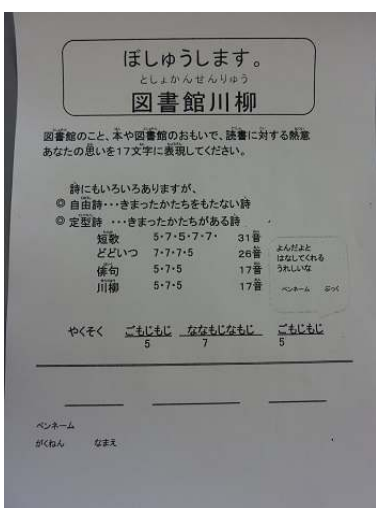 ぼしゅうします。
としょかんせんりゅう
図書館川柳
図書館のこと、本や図書館のおもいで、読書に対する熱意
あなたの思いを17文字に表現してください。
詩にもいろいろありますが、
◎ 自由詩・・・きまったかたちをもたない詩
◎ 定型詩 ・・・きまったかたちがある詩
短歌 5・7・5・7・7・ 31音
どどいつ 7・7・7・5 26音
俳句 5・7・5 17音
川柳 5・7・5 17音
よんだよと
はなしてくれる
うれしいな
ペンネーム ぶっく
やくそく ごもじもじ ななもじなもじ ごもじもじ
5 7 5
ペンネーム
がくねん なまえ